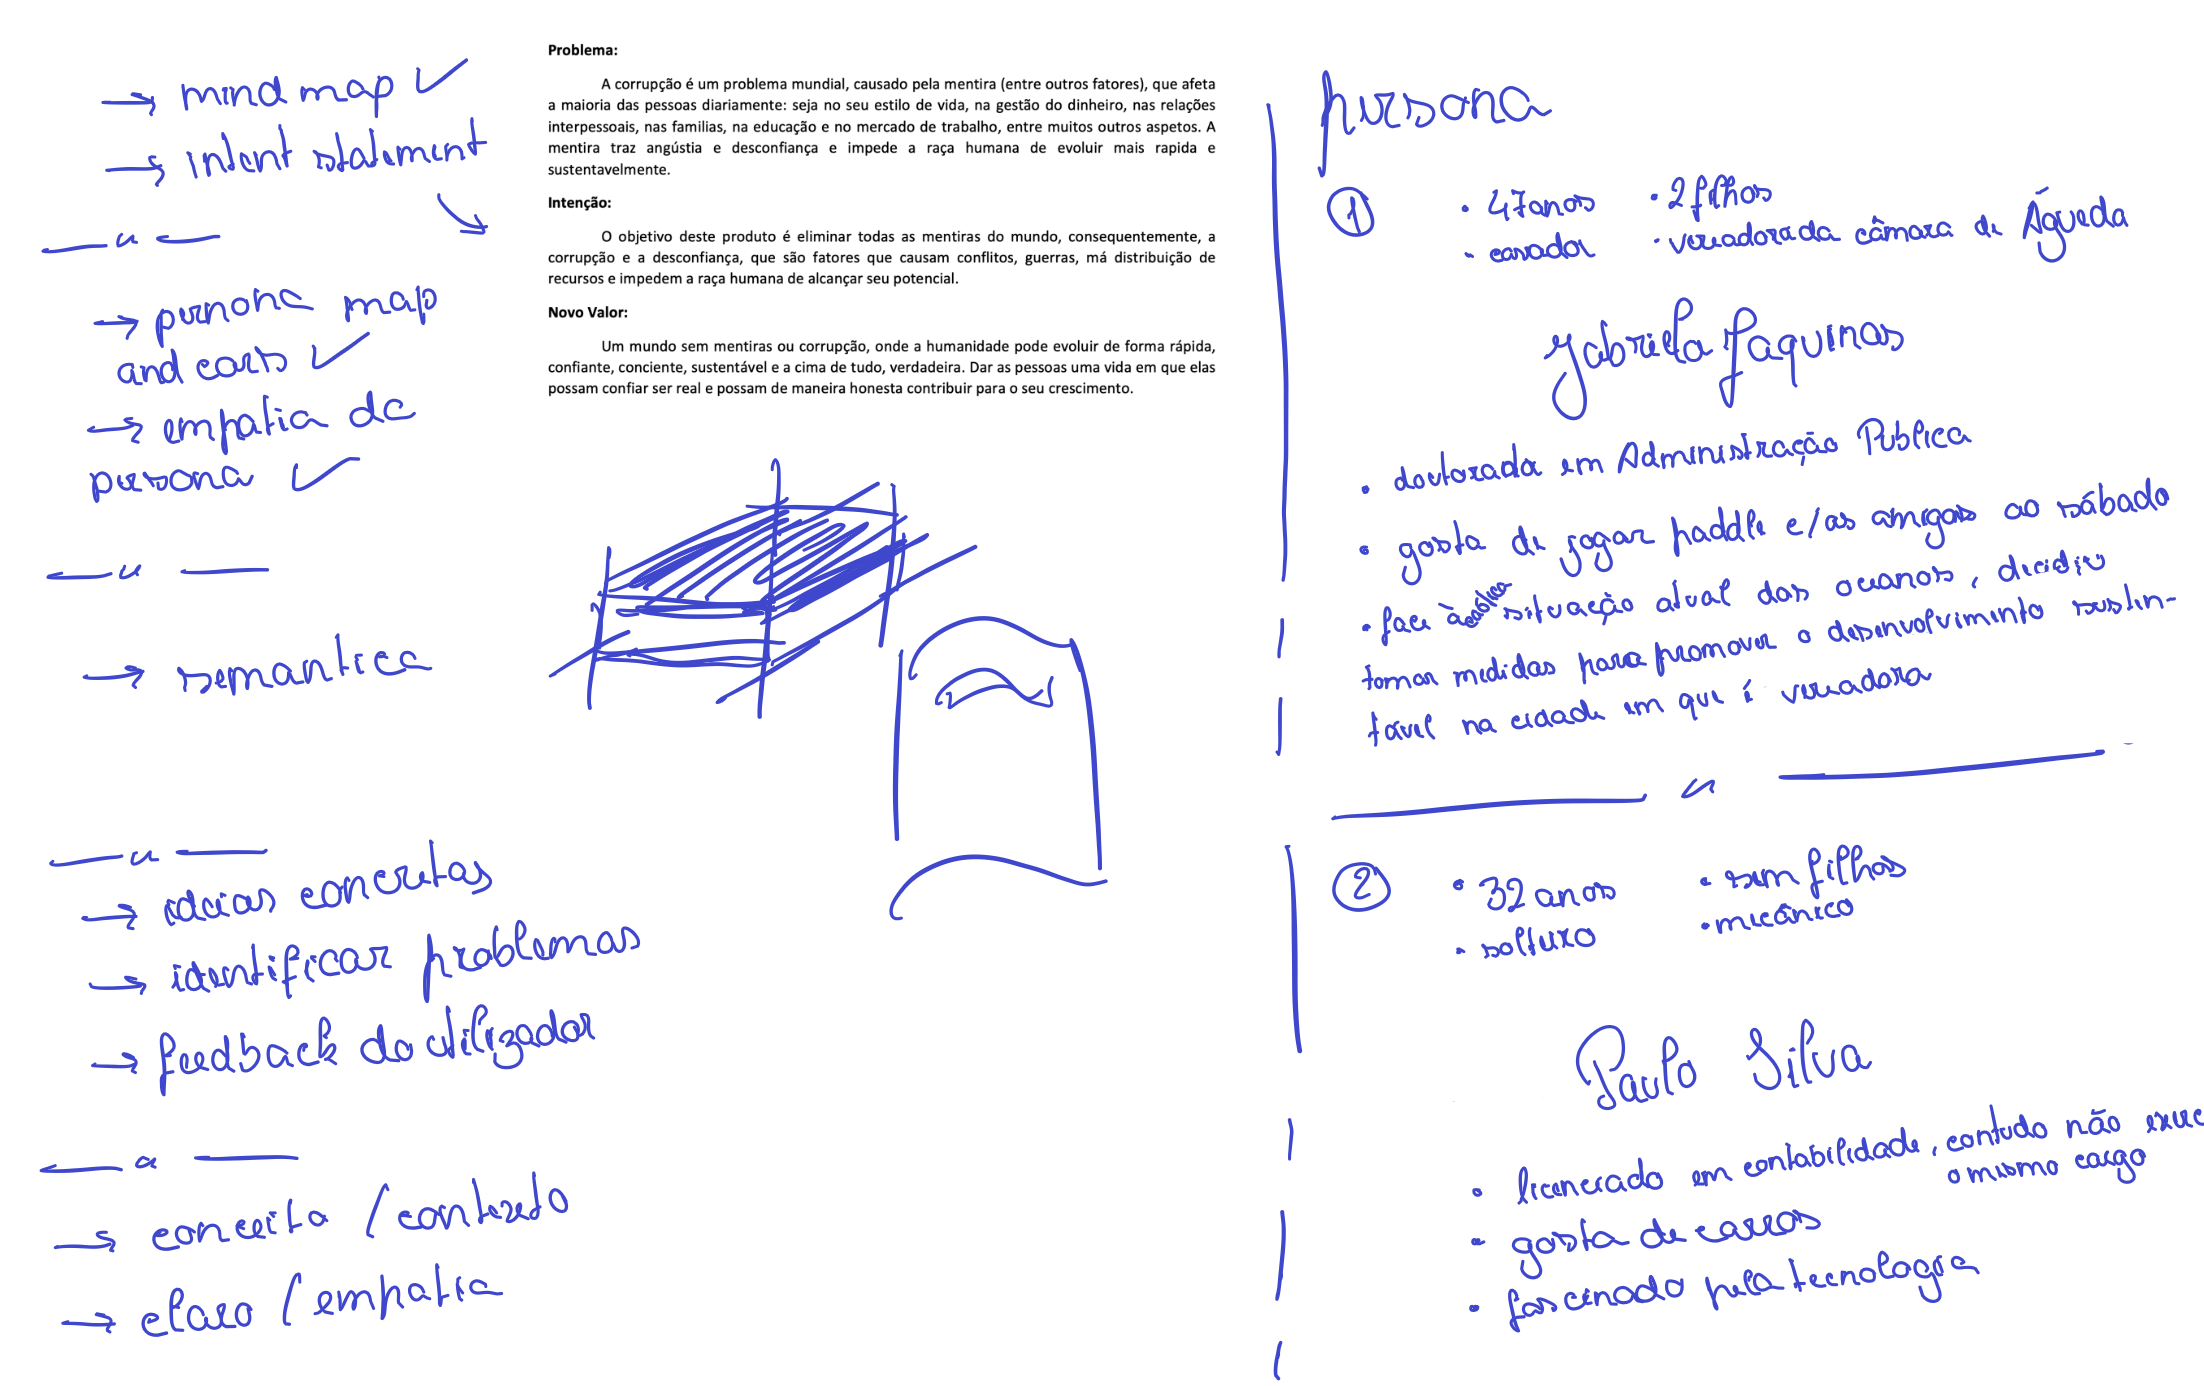 → mind map ✓
→ intent statement
→ persona map
and cards ✓
→ empatia da
persona ✓
→ semantica
→ ideias concretas
→ identificar problemas
→ feedback do utilizador
→ conceito / contexto
→ claro / empatia
Problema:
A corrupção é um problema mundial, causado pela mentira (entre outros fatores), que afeta
a maioria das pessoas diariamente: seja no seu estilo de vida, na gestão do dinheiro, nas relações
interpessoais, nas familias, na educação e no mercado de trabalho, entre muitos outros aspetos. A
mentira traz angústia e desconfiança e impede a raça humana de evoluir mais rapida e
sustentavelmente.
Intenção:
O objetivo deste produto é eliminar todas as mentiras do mundo, consequentemente, a
corrupção e a desconfiança, que são fatores que causam conflitos, guerras, má distribuição de
recursos e impedem a raça humana de alcançar seu potencial.
Novo Valor:
Um mundo sem mentiras ou corrupção, onde a humanidade pode evoluir de forma rápida,
confiante, conciente, sustentável e a cima de tudo, verdadeira. Dar as pessoas uma vida em que elas
possam confiar ser real e possam de maneira honesta contribuir para o seu crescimento.
persona
1 • 47 anos • 2 filhos
• casada • vereadora da câmara de Águeda
Gabriela Jaquinas
• doutorada em Administração Pública
• gosta de jogar paddle c/as amigas ao sábado
• face à caótica situação atual dos oceanos, decidiu
tomar medidas para promover o desenvolvimento susten-
tável na cidade em que é vereadora
2 • 32 anos • sem filhos
• solteiro • mecânico
Paulo Silva
• licenciado em contabilidade, contudo não exerc
o mesmo cargo
• gosta de carros
• fascinado pela tecnologia